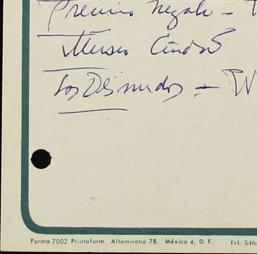 Premio Regalo –
Museo Ciudad
Los Desnudos –
Forma 7002 Printaform Altamirano 78, México 4, D. F. Tel. 546